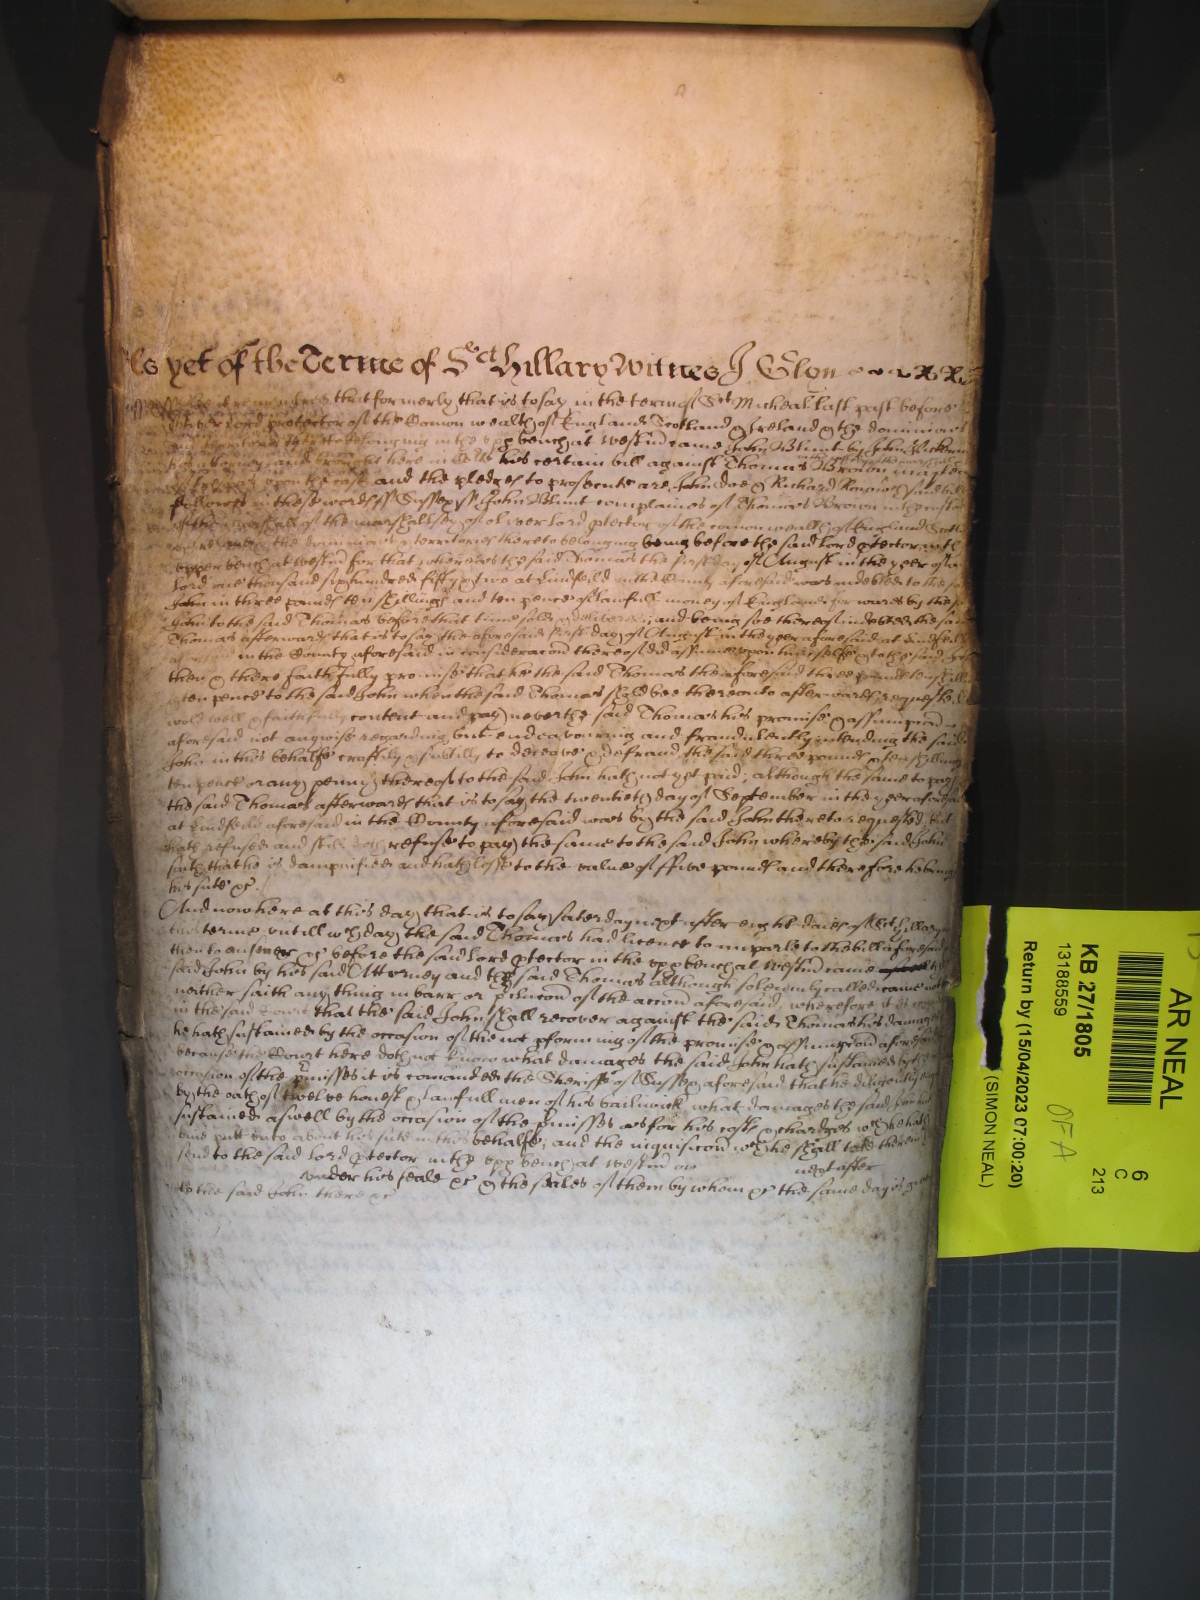 As yet of the Terme of Sct Hillary Witnes J Glyn
it remembred that formerly that is to say in the terme of Sct Micheal last past before
Oliver Lord protector of the Comon wealth of England Scotland & Ireland & the dominions
territories thereto belonging in the upp bench at Westm came John Blunt by John
his attorney and brought here in Court his certain bill against Thomas Brown
upon the case and the pledges to prosecute are John doe & Richard Roe which said bill
followes in these words ss Sussex ss John Blunt complaines of Thomas Brown in the custody
of the marshall of the marshallsey of oliver lord ptector of the comonwealth of England Scotl
Ireland & the dominions & territories thereto belonging being before the said lord ptector in th
upper bench at westm for that, whereas the said Thomas the first day of August in the yeer of o
Lord one thousand six hundred fifty & two at Lindfeild in the County aforesaid was indebted to the sa
John in three pounds ten shillings and ten pence of lawfull money of England for wares by the sa
John to the said Thomas before that time sold & delivered, and being soe thereof indebted the said
Thomas afterwards that is to say the aforesaid first day of August in the yeer aforesaid at Lindfeild
aforesaid in the County aforesaid in consideracon thereof did assume upon himselfe & to the said John
then & there faithfully promise that he the said Thomas the aforesaid three pounds ten shillings
& ten pence to the said John when the said Thomas shold bee thereunto afterwards requested
wold well & faithfully content and pay, neverthe said Thomas his promise & assumpcon
aforesaid not anywise regarding but endeavouring and fraudulently intending the said
John in this behalfe craftily & subtilly to deceave & defraud the said three pounds & ten shillings
ten pence or any penny thereof to the said John hath not yet paid; although the same to pay
the said Thomas afterwards that is to say the twentieth day of September in the yeer aforesaid
at Lindfeild aforesaid in the County aforesaid was by the said John thereto requested, but
hath refused and still doth refuse to pay the same to the said John whereby the said John
saith that he is dampnified and hath losse to the value of ffive pounds and therefore he brings
his sute &c.
And now here at this day that is to say Saterday next after eight daies of Sct Hillary
this terme untill wch day the said Thomas had licence to imparle to the bill aforesaid
then to answer &c before the said Lord ptector in the upp bench at Westm came the
said John by his said Attorney and the said Thomas although solemnly called came not
neither saith any thing in barr or pclucon of the accon aforesaid, wherefore it is
in the said Court that the said John shall recover against the said Thomas his damages
he hath sustained by the occasion of the not pforming of the promise & assumpcon aforesaid
because the Court here doth not know what damages the said John hath sustained by the
occasion of the pmisses it is comanded the Sheriffe of Sussex aforesaid that he diligently
by the oath of twelve honest & lawfull men of his bailiwick what damages the said John
sustained aswell by the occasion of the pmisses as for his costs & chardges wch he hath
bine putt unto about his suite in this behalfe; and the inquisicon wch he shall take thereon
send to the said Lord ptector in the upp bench at Westm on next after
under his seale &c & the seales of them by whom &c the same day is given
to the said John there &c
AR NEAL
6
C
213
KB 27/1805
13188559
OFA
Return by (15/04/2023 07:00:20)
(SIMON NEAL)